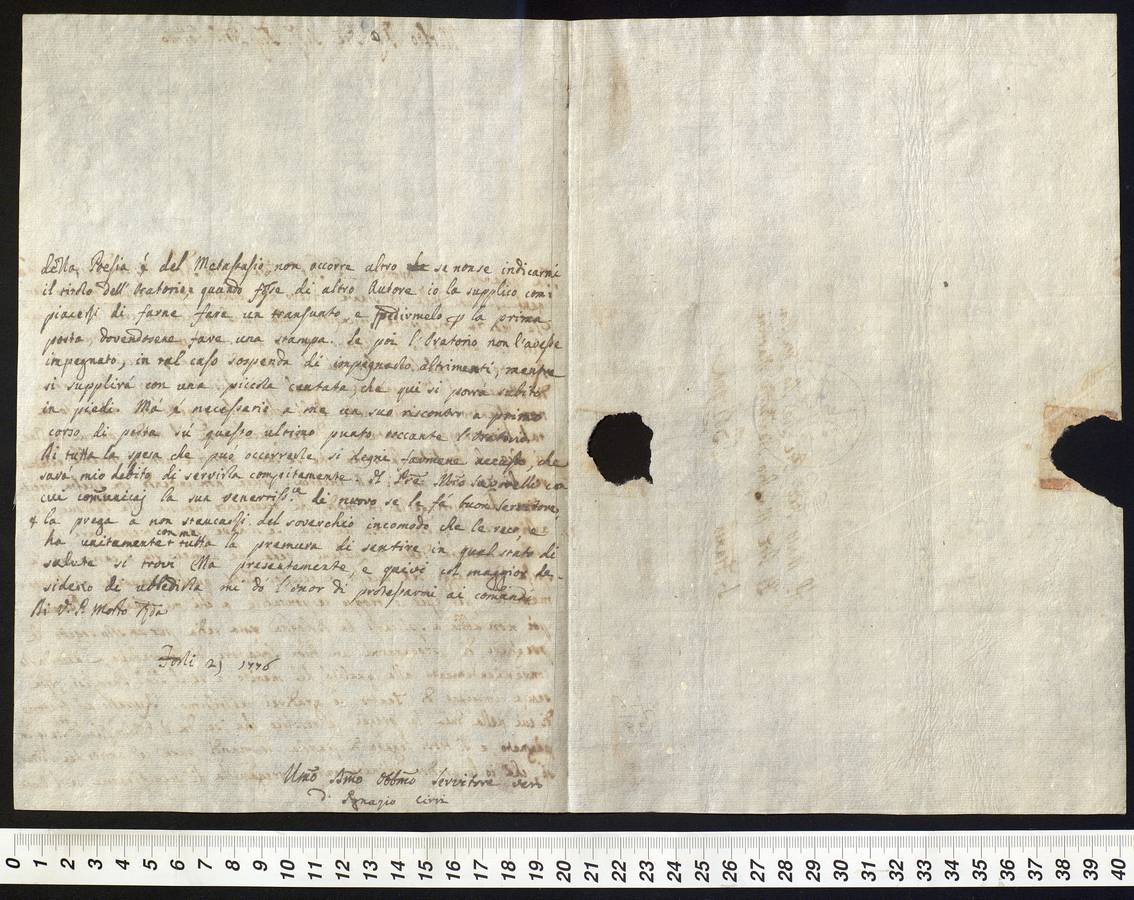 della Poesia è del Metastasio, non occorre altro se non se indicarmi
il titolo dell'Oratorio, quando fosse di altro Autore io la supplico com=
piacersi di farne fare un transunto, e spedirmelo p la prima
posta, dovendosene fare una stampa. Se poi l'Oratorio non l'avesse
impegnato, in tal caso sospenda di impegnarlo altrimenti, mentre
si supplirà con una piccola cantata, che qui si potrà subito
in piedi. Mà è necessario a me un suo riscontro a primo
corso di posta sù questo ultimo punto toccante l'Oratorio.
Di tutta la spesa che può occorrerle si degni farmene che
sarà mio debito di servirla compitamente. Il Mro con
cui comunicaj la sua venerriss.a di nuovo se le fà buon servitore,
e la prega a non stancarsi del soverchio incomodo che le reca, e
ha unitamente con me tutta la premura di sentire in qual stato di
salute si trovi Ella presentemente, e quivi col maggior de-
siderio di ubbidirla mi dò l'onor di protestarmi ai comandi
Di V. P. Molto Rda
Forlì 2j 1776
Umo Dmo Obbmo Servitore vero
Ignazio Cirri
0 1 2 3 4 5 6 7 8 9 10 11 12 13 14 15 16 17 18 19 20 21 22 23 24 25 26 27 28 29 30 31 32 33 34 35 36 37 38 39 40